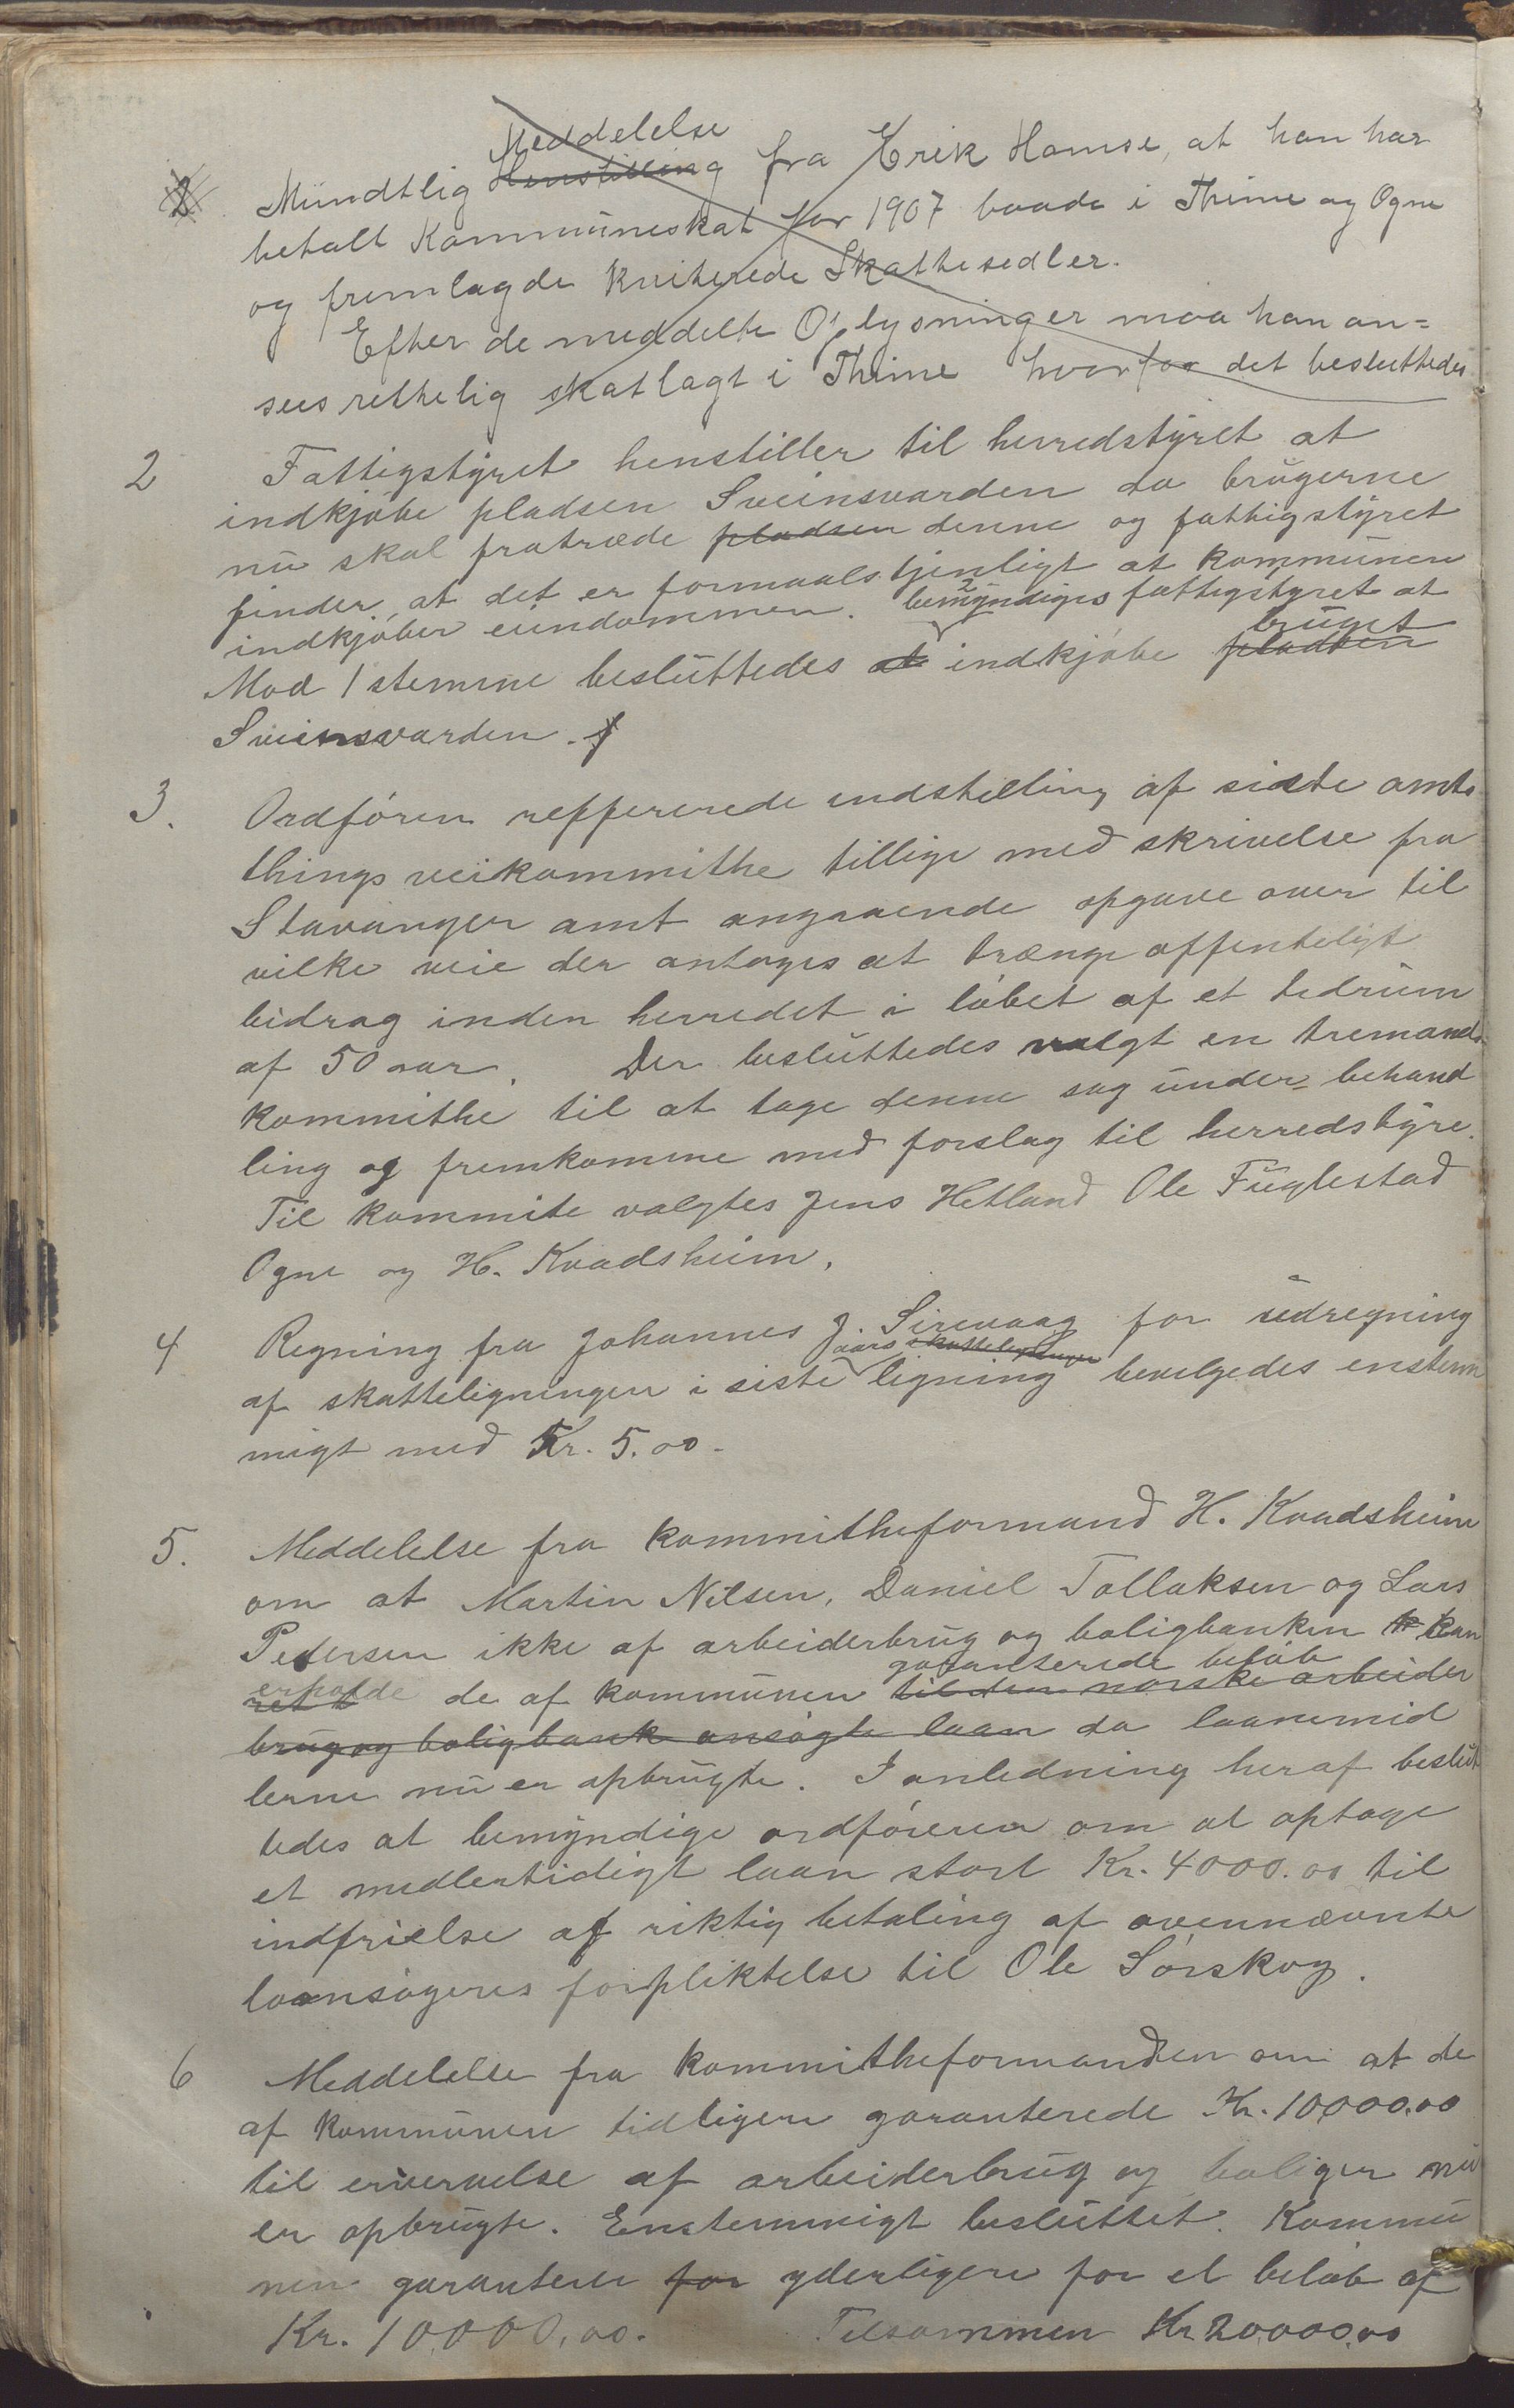 Meddelelse
2 Mundtlig Henstilling fra Erik Homse, at han har
betalt Kommuneskat for 1907 baade i Thime og Ogne
og fremlagde kviterede Skattesedler.
Efter de meddelte Oplysninger maa han an=
sees rettelig skatlagt i Thime hvorfor det besluttedes
2 Fattigstyret henstiller til herredstyret at
indkjøbe pladsen Sveinsvarden da brugerne
nu skal fratræde pladsen denne og fattigstyret
finder, at det er formaalstjenligt at kommunen
indkjøber eiendommen. bemyndiges fattigstyret at
Mod 1 stemme besluttedes at indkjøbe pladsen bruget
Sveinsvarden.
3. Ordføren reffererede indstilling af sidste amts
things veikommithe tillige med skrivelse fra
Stavanger amt angaaende opgave over til
vilke veie der antages at trænge offenteligt
bidrag inden herredet i løbet af et tidrum
af 50 aar. Der besluttedes valgt en tremands
kommithe til at tage denne sag under behand
ling og fremkomme med forslag til herredstyre.
Til kommite valgtes Jens Hetland Ole Fuglestad
Ogne og H. Kvadsheim.
4 Regning fra Johannes J. Sirevaag for udregning
aars skatteligninger
af skatteligningen i siste ligning bevilgedes enstem
migt med Kr. 5.00.
5. Meddelelse fra kommitheformand H. Kvadsheim
om at Martin Nilsen, Daniel Tollaksen og Lars
Pedersen ikke af arbeiderbrug og boligbanken kan
garanterede beløb
erholde de af kommunen til den norske arbeider
brug og boligbank ansøgte laan da laanemid
lerne nu er opbrugte. I anledning heraf beslut
tedes at bemyndige ordføreren om at optage
et medlertidigt laan stort Kr. 4000.00 til
indfrielse af riktig betaling af ovennævnte
laansøgeres forpliktelse til Ole Sørskog.
6 Meddelelse fra kommitheformanden om at de
af kommunen tidligere garanterede Kr. 10,000.00
til erivervelse af arbeiderbrug og boliger nu
er opbrugte. Enstemmigt besluttet. Kommu
nen garanterer for yderligere for et beløb af
Kr. 10000,00. Tilsammen Kr 20000.00